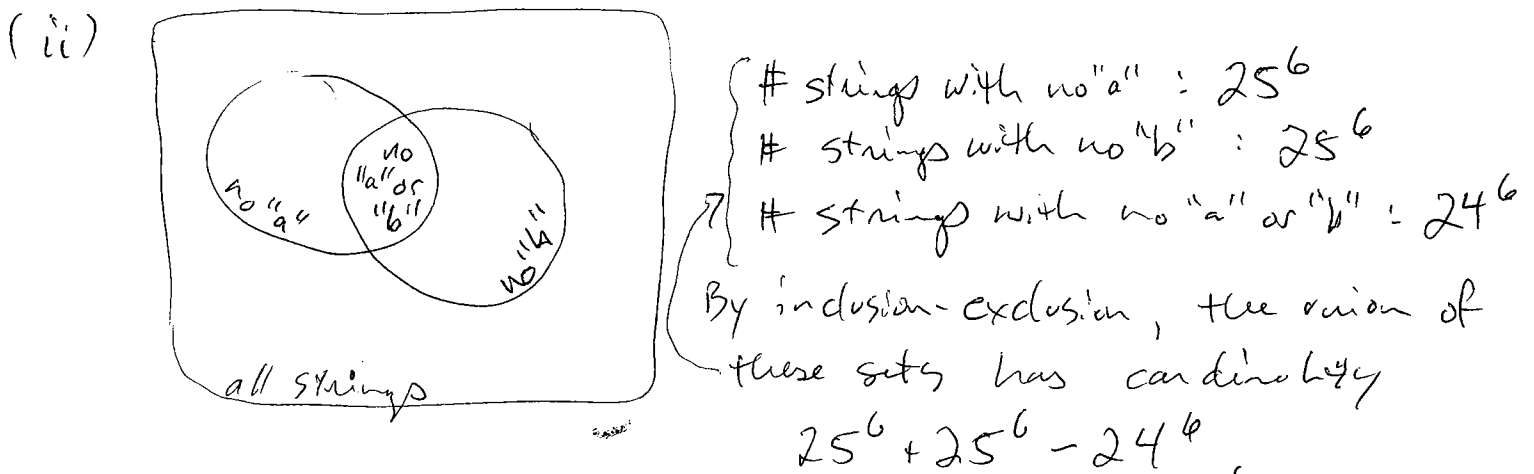 (ii)
no "a"
no
"a" or
"b"
no "b"
all strings
# strings with no "a" : 25^6
# strings with no "b" : 25^6
# strings with no "a" or "b" : 24^6
By inclusion-exclusion, the union of
these sets has cardinality
25^6 + 25^6 - 24^6